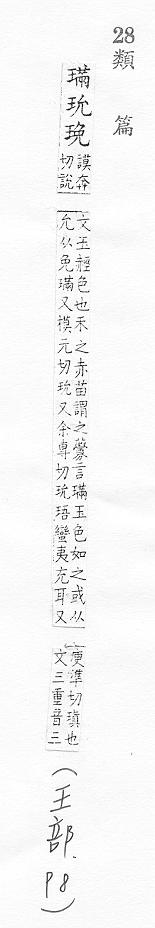 28
類篇
璊玧琓
謨奔切說
文玉䞓色也禾之赤苗謂之虋言璊玉色如之或从
允从免璊又模元切玧又余專切玧珸蠻夷充耳又
庾準切瑱也
文三重音三
(王部. P8)